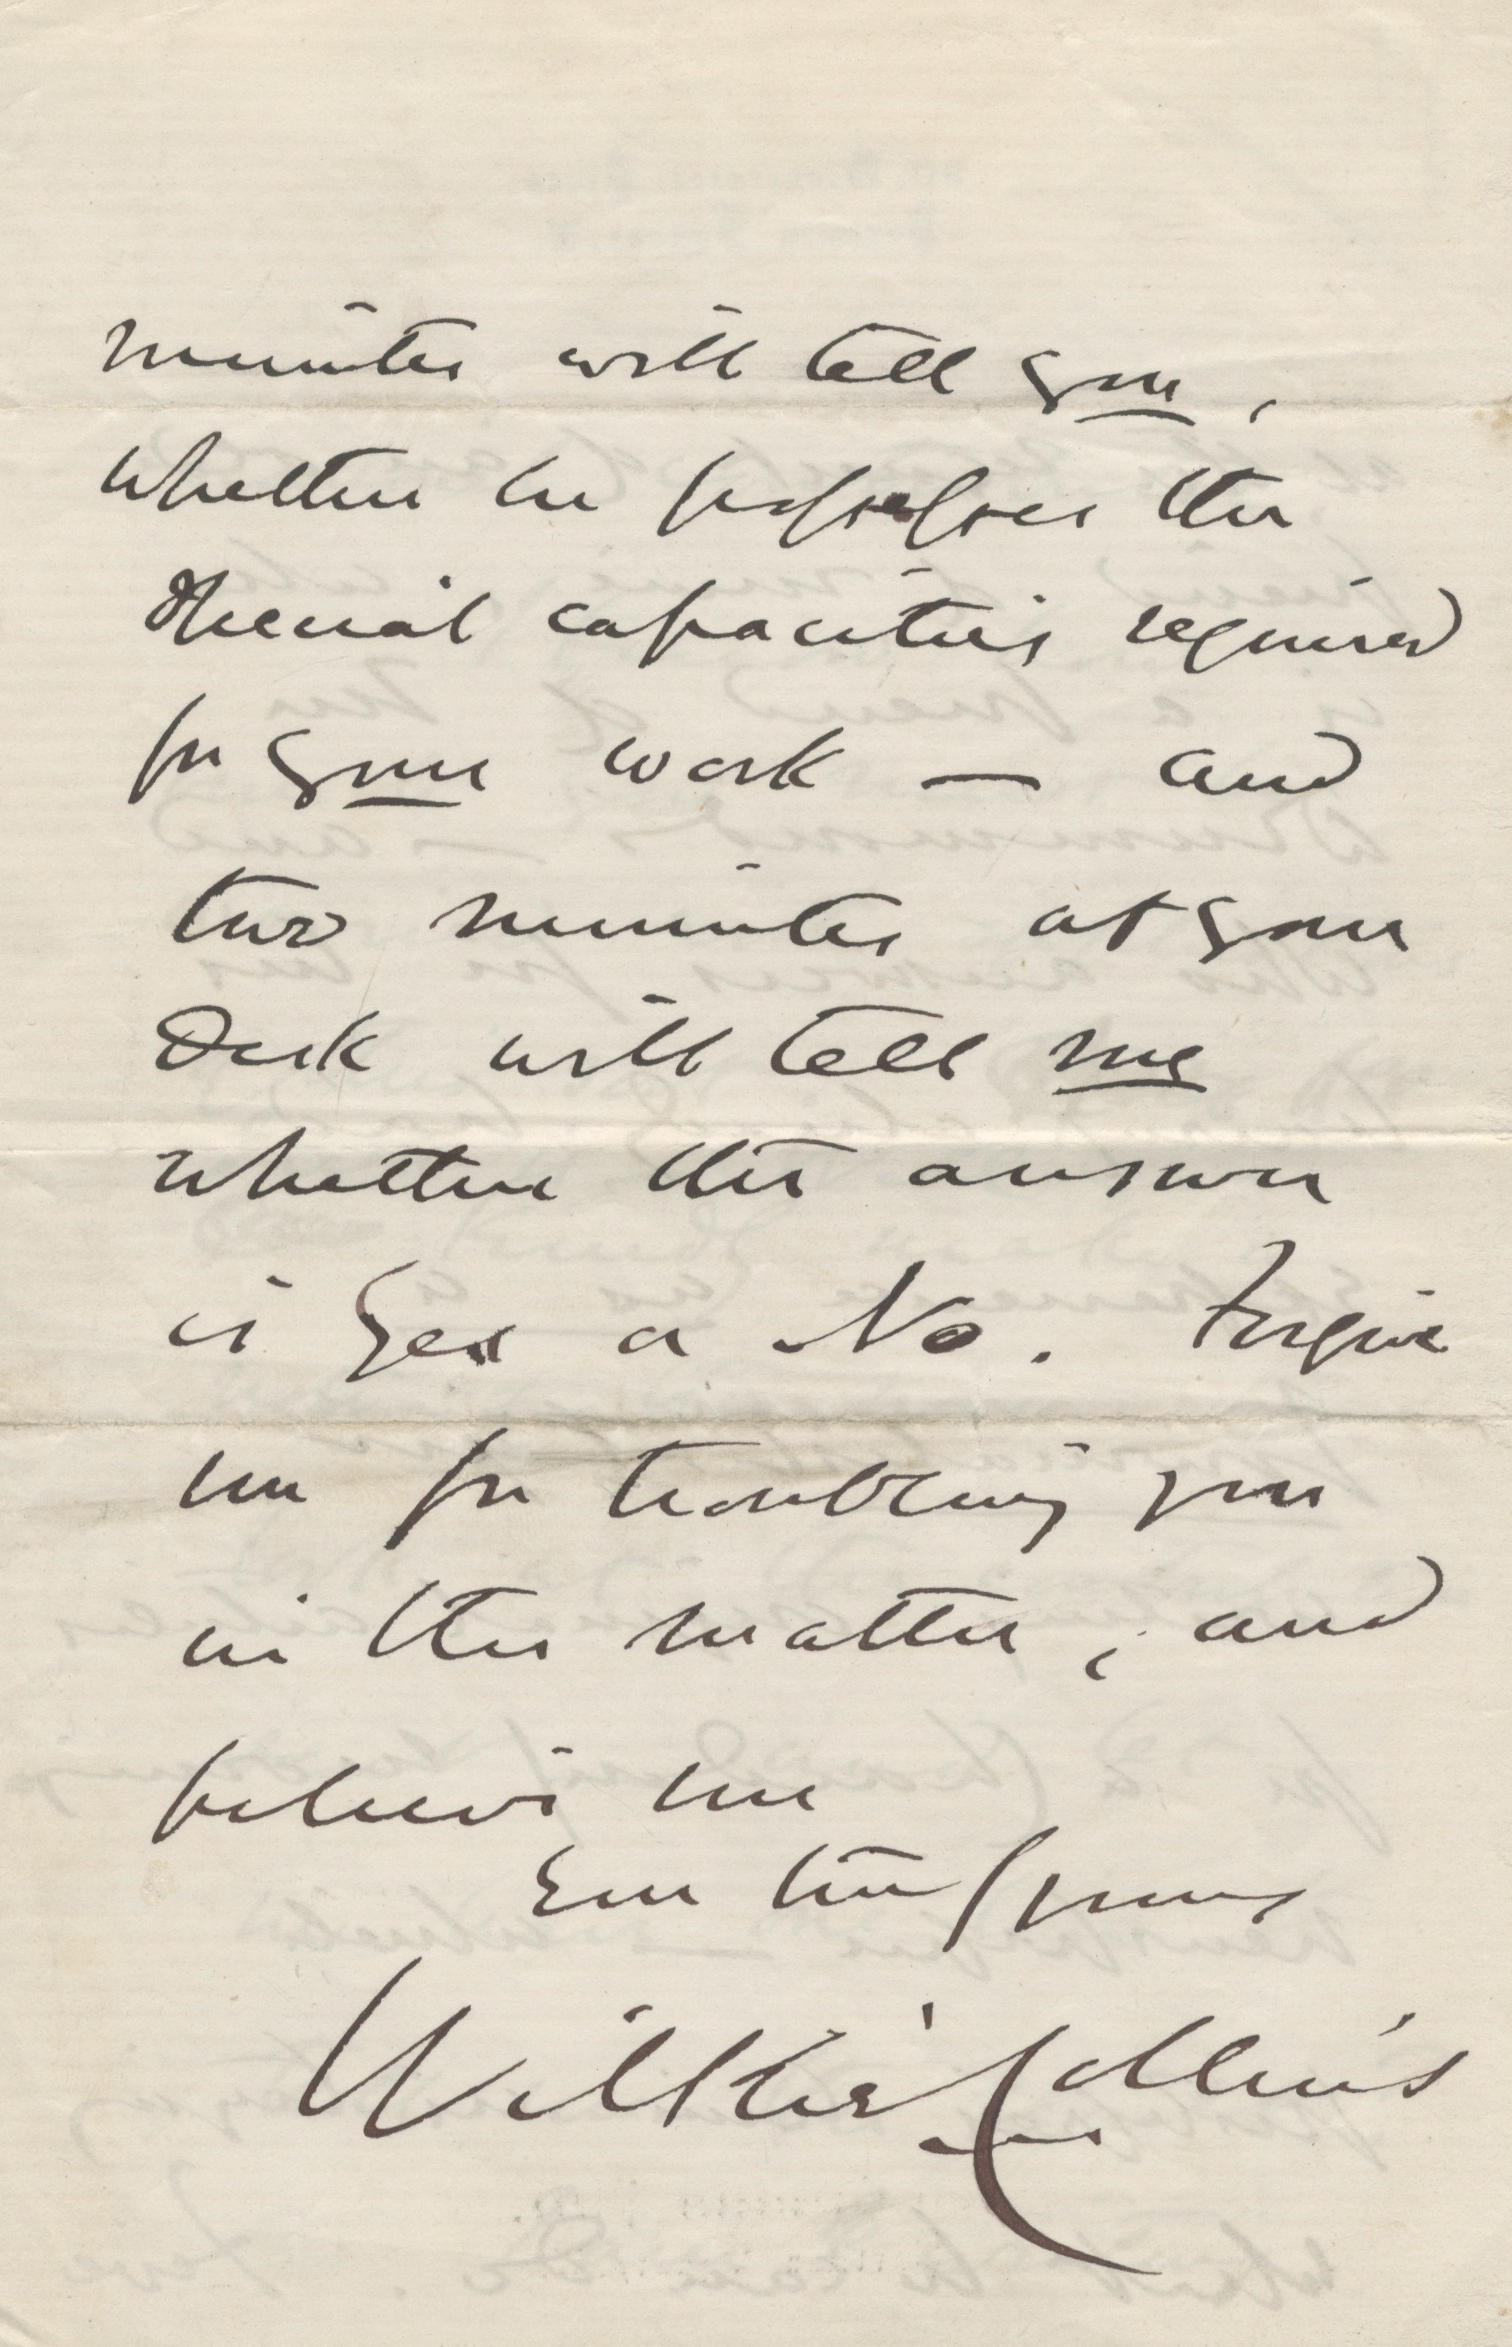 minutes will tell you,
whether he possesses the
special capacities required
for your work — and
two minutes at your
desk will tell me
whether the answer
is Yes or No. Forgive
me for troubling you
in the matter, and
believe me
Ever truly yours
Wilkie Collins